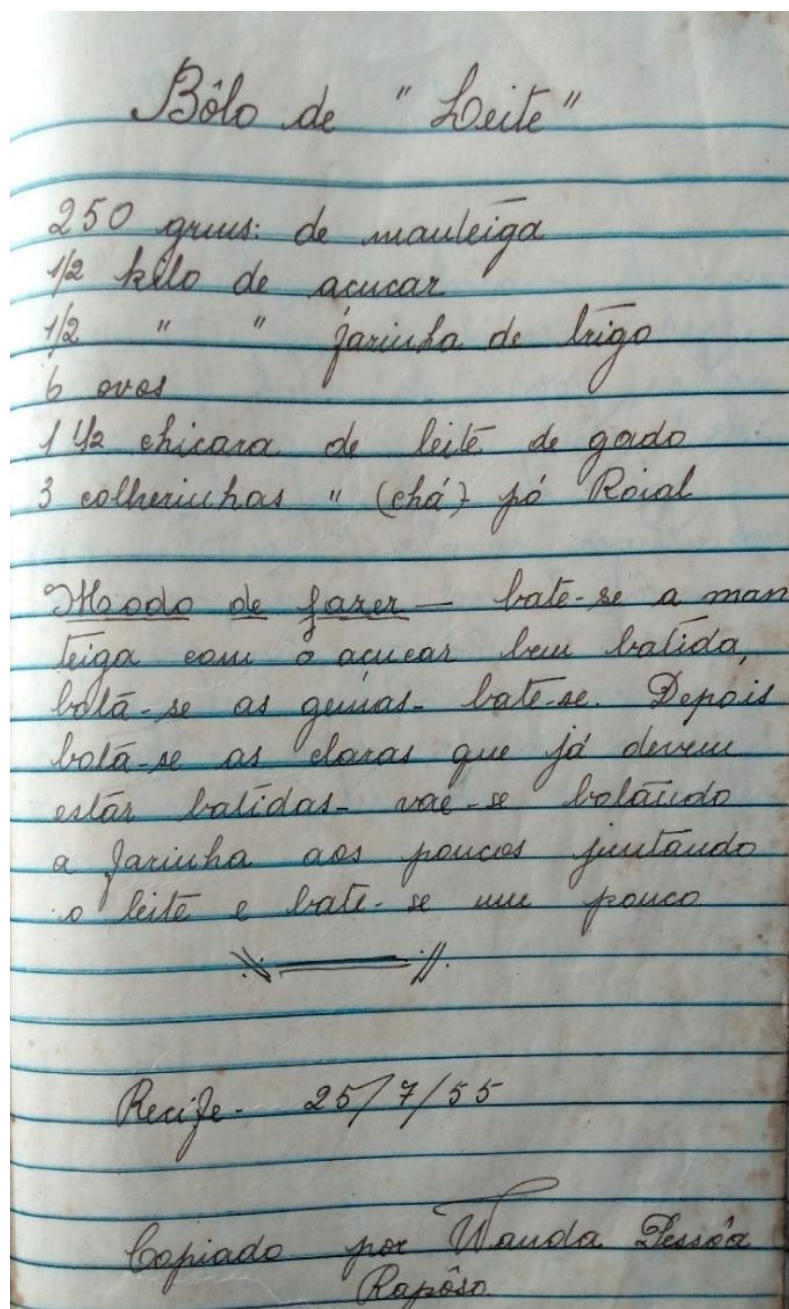 Bôlo de "Leite"
250 grms: de manteiga
1/2 kilo de acucar
1/2 " " farinha de trigo
6 ovos
1 1/2 chicara de leite de gado
3 colherinhas " (chá) pó Roial
Modo de fazer — bate-se a man
teiga com o acucar bem batida,
bota-se as gemas - bate-se. Depois
bota-se as claras que já devem
estár batidas - vae-se botando
a farinha aos poucos juntando
o leite e bate-se um pouco
Recife - 25/7/55
Copiado por Wanda Pessôa
Rapôso